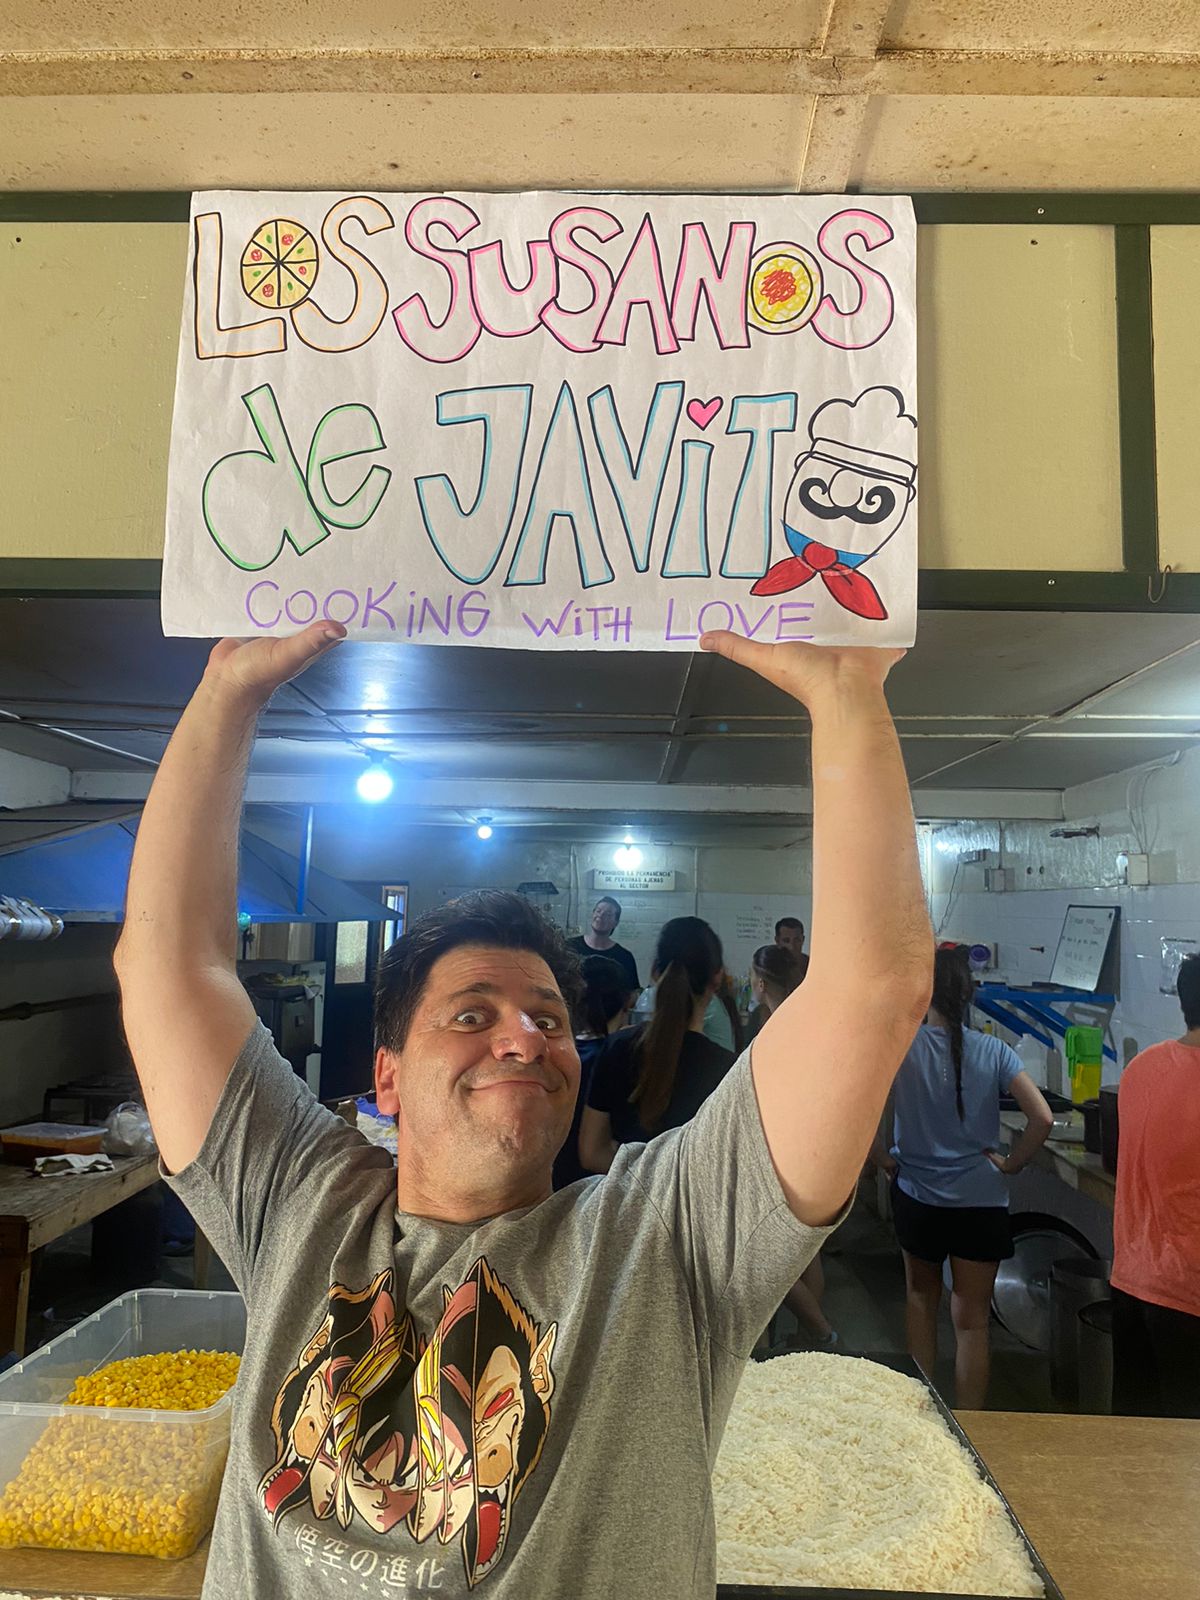 LOS SUSANOS
de JAViTO
COOKiNG WiTH LOVE
"PROHIBIDO LA PERMANENCIA"
DE PERSONAS AJENAS
AL SECTOR
悟空の進化